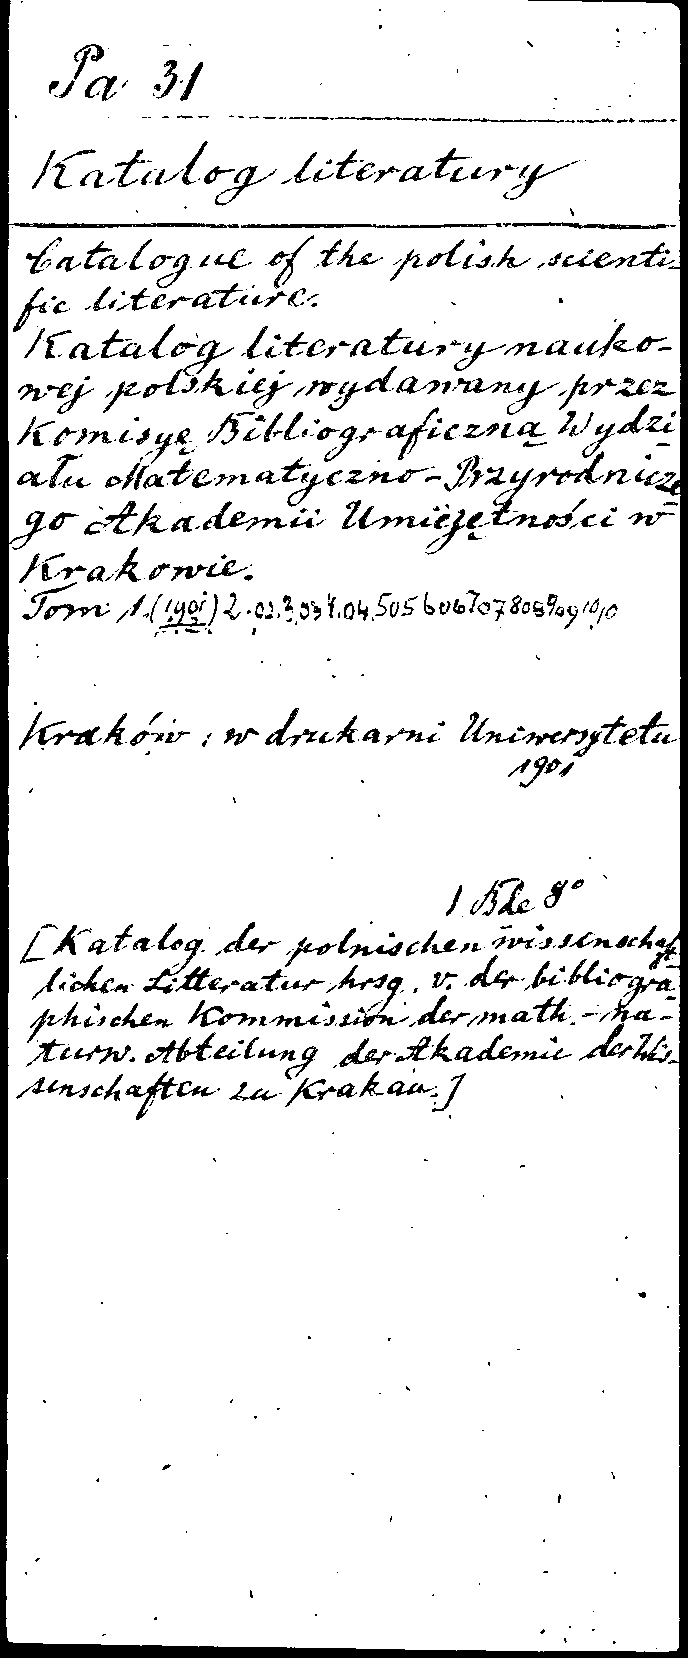 Pa 31
Katalog literatury
Catalogue of the polish scienti-
fic literature.
Katalog literatury nauko-
wej polskiej wydawany przez
Komisyę Bibliograficzną Wydzi
ału Matematyczno-Przyrodnicze
go Akademii Umiejętności w
Krakowie.
Tom 1.(1901) 2.02.3.03 4.04.505 606 707 808 909 10/10
Kraków: w drukarni Uniwersytetu
1901
1 Bde 8°
[Katalog der polnischen wissenschaft-
lichen Litteratur hrsg. v. der bibliogra-
phischen Kommission der math.-na-
turw. Abteilung der Akademie der Wis-
senschaften zu Krakau.]